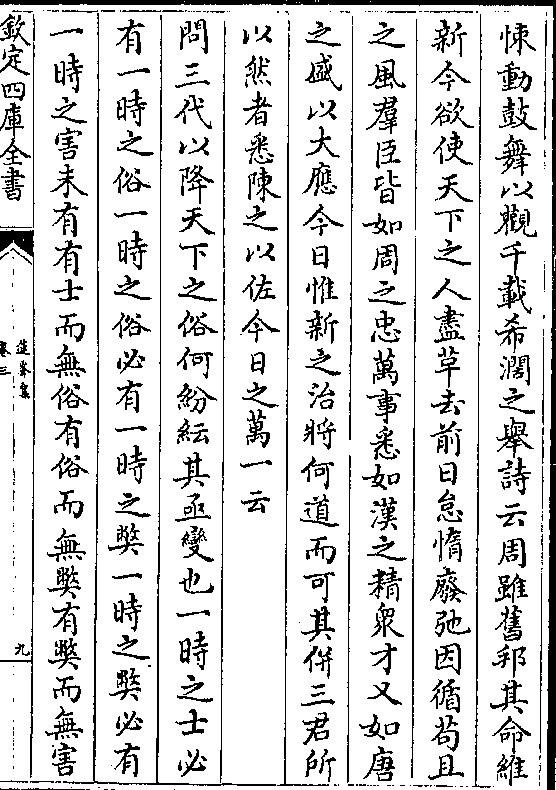 悚動鼓舞以觀千載希濶之舉詩云周雖舊邦其命維
新今欲使天下之人盡草去前日怠惰廢弛因循苟且
之風羣臣皆如周之忠萬事悉如漢之精衆才又如唐
之盛以大應今日惟新之治將何道而可其併三君所
以然者悉陳之以佐今日之萬一云
問三代以降天下之俗何紛紜其亟變也一時之士必
有一時之俗一時之俗必有一時之獘一時之獘必有
一時之害未有有士而無俗有俗而無獘有獘而無害
欽定四庫全書
蓮峯集
卷三
九